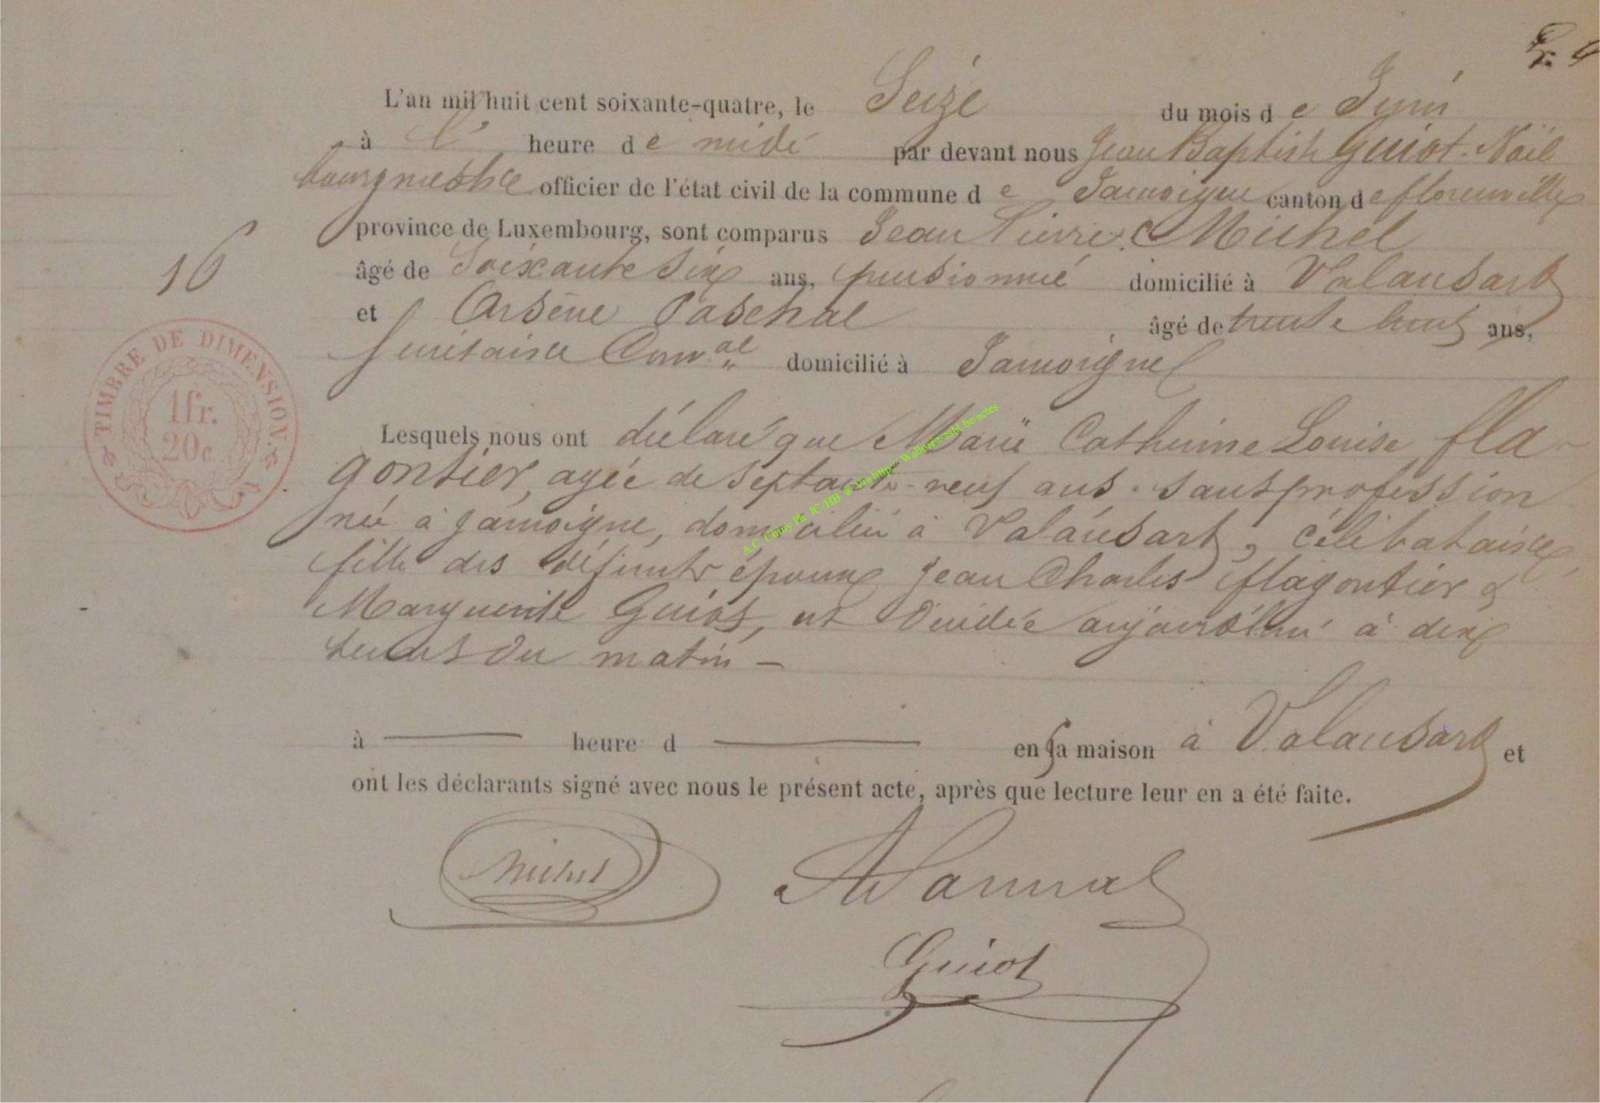 L'an mil huit cent soixante-quatre, le Seize du mois d e Juin
à l' heure d e midi par devant nous Jean Baptiste Guiot-Noël
bourgmestre officier de l'état civil de la commune d e Jamoigne canton d e florenville
province de Luxembourg, sont comparus Jean Pierre Michel
16
âgé de Soixante Six ans, pensionné domicilié à Valansart
et Arsène Paschal âgé de trente huit ans,
Secrétaire Com.al domicilié à Jamoigne
TIMBRE DE DIMENSION.
1fr.
20c
Lesquels nous ont déclaré que Marie Catherine Louise fla-
gontier, agée de Septante-neuf ans. sans profession
née à Jamoigne, domiciliée à Valansart, célibataire,
fille des défunts époux Jean Charles flagontier &
Marguerite Guiot, est décidée aujourd'hui à dix
heures du matin -
à heure d en sa maison à Valansart et
ont les déclarants signé avec nous le présent acte, après que lecture leur en a été faite.
Michel
Guiot